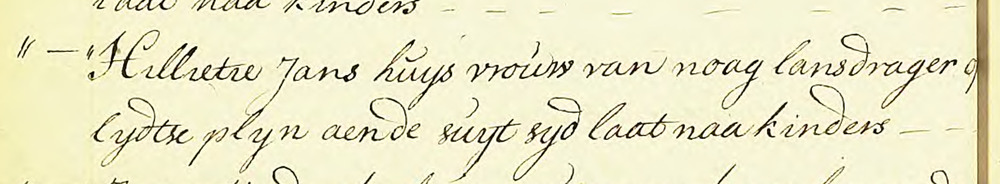 laat naa kinders - - - - - -
" — " Hilletie Jans huijs vrouw van noag lansdrager o
lydtse plyn aende suyt syd laat naa kinders - -